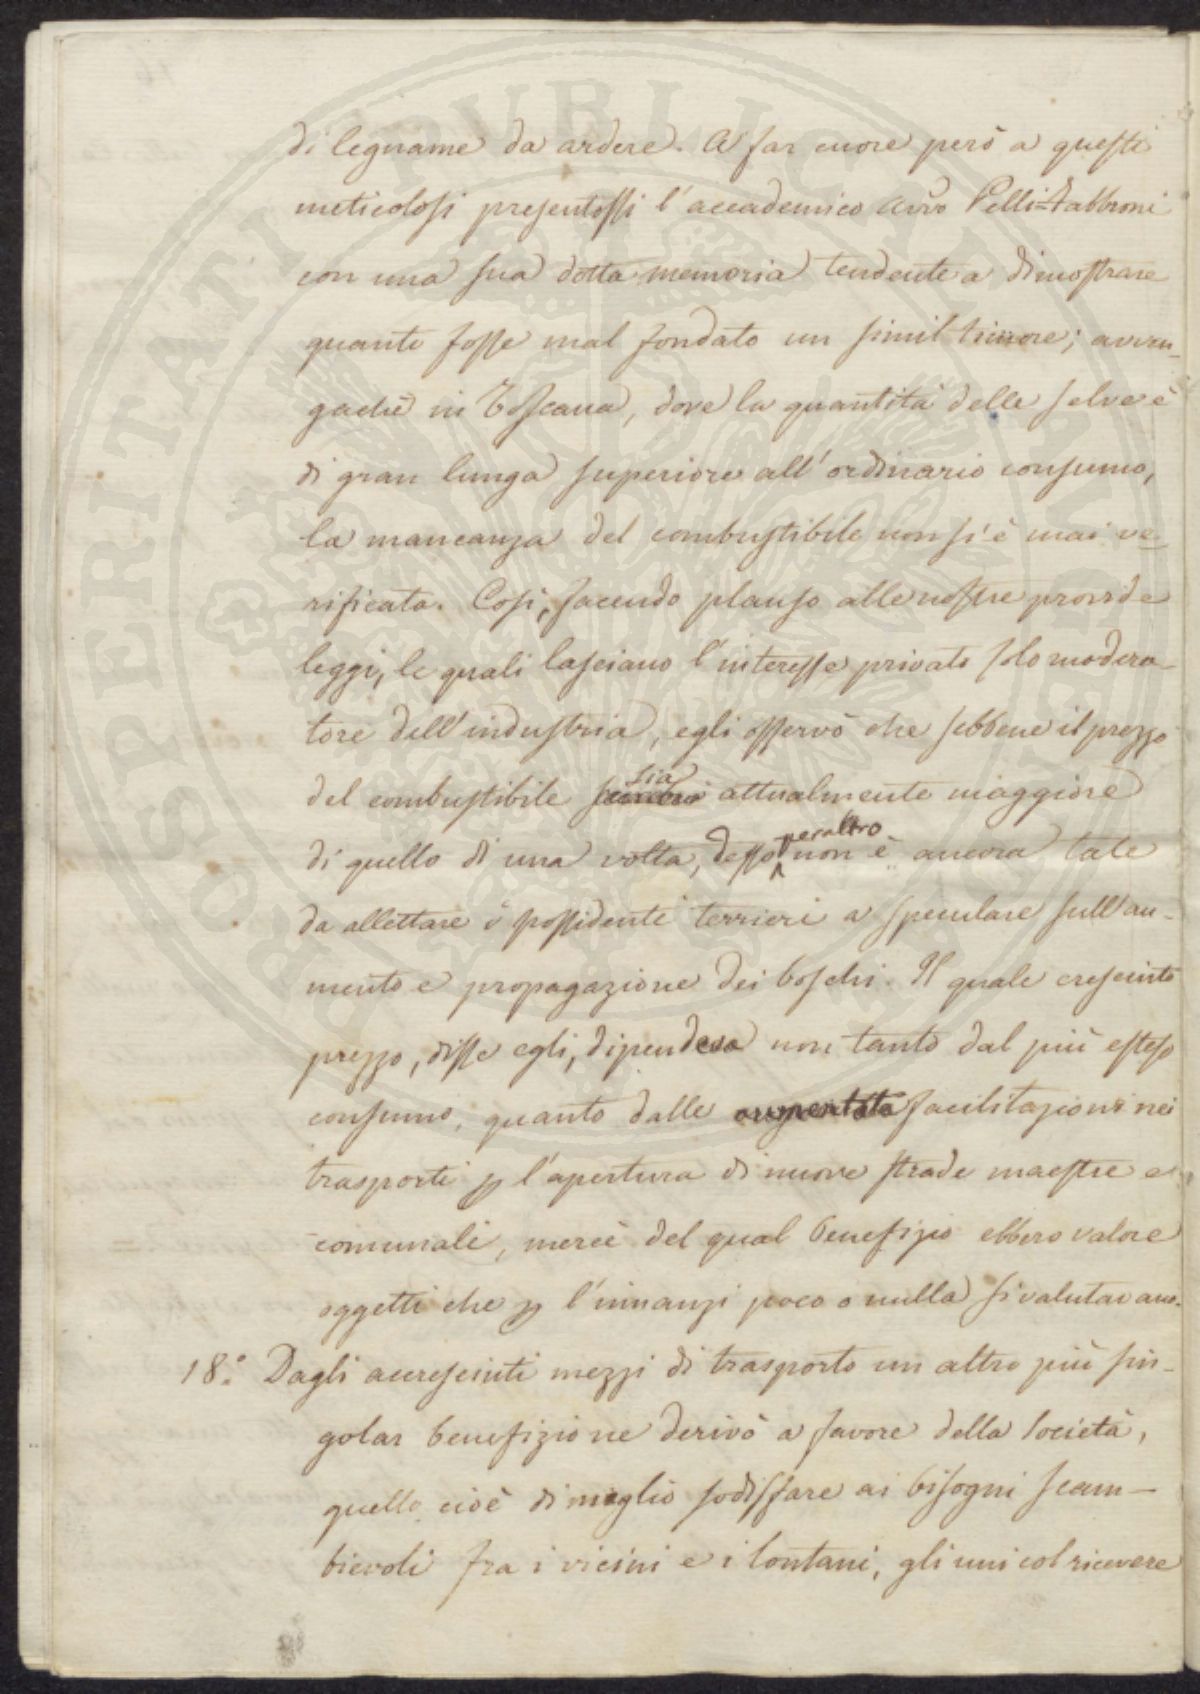 di legname da ardere. A far cuore però a questi
meticolosi presentossi l'accademico Avvo Pelli=Fabbroni
con una sua dotta memoria tendente a dimostrare
quanto fosse mal fondato un simil timore; avven-
gachè in Toscana, dove la quantità delle selve è
di gran lunga superiore all'ordinario consumo,
la mancanza del combustibile non si è mai ve-
rificata. Così, facendo plauso alle nostre provvide
leggi, le quali lasciano l'interesse privato solo modera-
tore dell'industria, egli osservò che sebbene il prezzo
del combustibile sia attualmente maggiore
di quello di una volta, desso peraltro non è ancora tale
da allettare i possidenti terrieri a speculare sull'au-
mento e propagazione dei boschi. Il quale cresciuto
prezzo, disse egli, dipendeva non tanto dal più esteso
consumo, quanto dalle facilitazioni nei
trasporti p l'apertura di nuove strade maestre e
comunali, mercè del qual benefizio ebbero valore
oggetti che p l'innanzi poco o nulla si valutavano.
18.° Dagli accresciuti mezzi di trasporto un altro più sin-
golar benefizio ne derivò a favore della Società,
quello cioè di meglio sodisfare ai bisogni scam-
bievoli fra i vicini e i lontani, gli uni col ricevere
PROSPERITATI PVBLICAE AVGENDAE